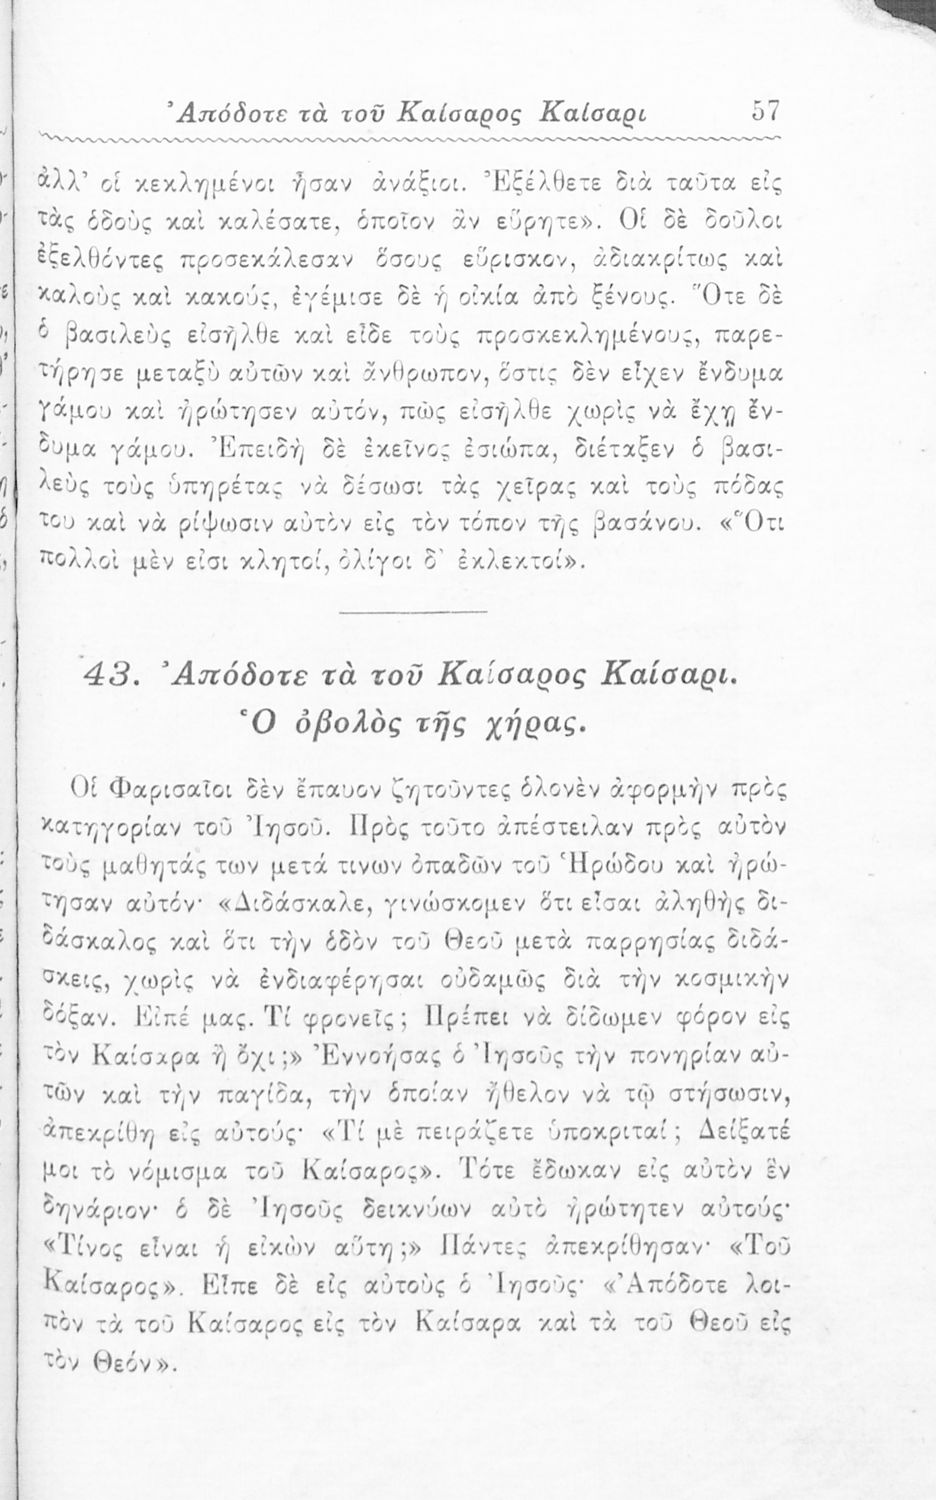 Ἀπόδοτε τὰ τοῦ Καίσαρος Καίσαρι 57
ἀλλ’ οἱ κεκλημένοι ἦσαν ἀνάξιοι. Ἐξέλθετε διὰ ταῦτα εἰς
τὰς ὁδοὺς καὶ καλέσατε, ὁποῖον ἂν εὕρητε». Οἱ δὲ δοῦλοι
ἐξελθόντες προσεκάλεσαν ὅσους εὕρισκον, ἀδιακρίτως καὶ
καλοὺς καὶ κακούς, ἐγέμισε δὲ ἡ οἰκία ἀπὸ ξένους. Ὅτε δὲ
ὁ βασιλεὺς εἰσῆλθε καὶ εἶδε τοὺς προσκεκλημένους, παρε-
τήρησε μεταξὺ αὐτῶν καὶ ἄνθρωπον, ὅστις δὲν εἶχεν ἔνδυμα
γάμου καὶ ἠρώτησεν αὐτόν, πῶς εἰσῆλθε χωρὶς νὰ ἔχῃ ἔν-
δυμα γάμου. Ἐπειδὴ δὲ ἐκεῖνος ἐσιώπα, διέταξεν ὁ βασι-
λεὺς τοὺς ὑπηρέτας νὰ δέσωσι τὰς χεῖρας καὶ τοὺς πόδας
του καὶ νὰ ρίψωσιν αὐτὸν εἰς τὸν τόπον τῆς βασάνου. «Ὅτι
πολλοὶ μὲν εἰσι κλητοί, ὀλίγοι δ’ ἐκλεκτοί».
43. Ἀπόδοτε τὰ τοῦ Καίσαρος Καίσαρι.
Ὁ ὀβολὸς τῆς χήρας.
Οἱ Φαρισαῖοι δὲν ἔπαυον ζητοῦντες ὁλονὲν ἀφορμὴν πρὸς
κατηγορίαν τοῦ Ἰησοῦ. Πρὸς τοῦτο ἀπέστειλαν πρὸς αὐτὸν
τοὺς μαθητάς των μετά τινων ὀπαδῶν τοῦ Ἡρώδου καὶ ἠρώ-
τησαν αὐτόν· «Διδάσκαλε, γινώσκομεν ὅτι εἶσαι ἀληθὴς δι-
δάσκαλος καὶ ὅτι τὴν ὁδὸν τοῦ Θεοῦ μετὰ παρρησίας διδά-
σκεις, χωρὶς νὰ ἐνδιαφέρησαι οὐδαμῶς διὰ τὴν κοσμικὴν
δόξαν. Εἰπέ μας. Τί φρονεῖς; Πρέπει νὰ δίδωμεν φόρον εἰς
τὸν Καίσαρα ἢ ὄχι;» Ἐννοήσας ὁ Ἰησοῦς τὴν πονηρίαν αὐ-
τῶν καὶ τὴν παγίδα, τὴν ὁποίαν ἤθελον νὰ τῷ στήσωσιν,
ἀπεκρίθη εἰς αὐτούς· «Τί μὲ πειράζετε ὑποκριταί; Δείξατέ
μοι τὸ νόμισμα τοῦ Καίσαρος». Τότε ἔδωκαν εἰς αὐτὸν ἓν
δηνάριον· ὁ δὲ Ἰησοῦς δεικνύων αὐτὸ ἠρώτητεν αὐτούς·
«Τίνος εἶναι ἡ εἰκὼν αὕτη;» Πάντες ἀπεκρίθησαν· «Τοῦ
Καίσαρος». Εἶπε δὲ εἰς αὐτοὺς ὁ Ἰησοῦς· «Ἀπόδοτε λοι-
πὸν τὰ τοῦ Καίσαρος εἰς τὸν Καίσαρα καὶ τὰ τοῦ Θεοῦ εἰς
τὸν Θεόν».